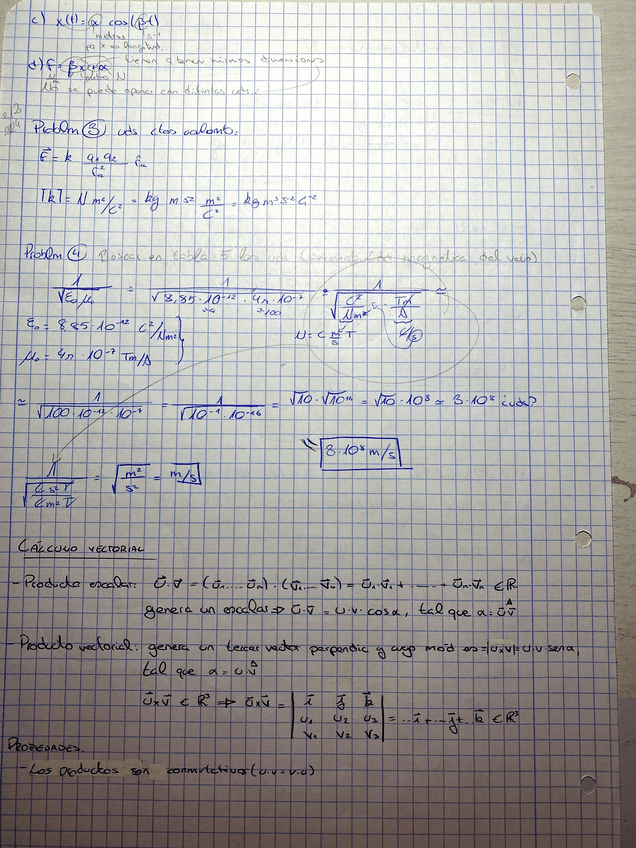 c) x(t) = α cos(βt)
metros s⁻¹
pq x es longitud.
d) f = βx + α tienen q tener mismas dimensiones
N metro N
No se puede operar con distintas uds.
Problm ③ uds ctes coulomb.
F⃗ = k q₁q₂/r₁₂² r̂₁₂
[k] = N m²/C² = kg m s² m²/C² = kg m³ s⁻² C⁻²
Problm ④ Buscar en tabla 5
1/√(ε₀μ₀) = 1/√(8,85·10⁻¹²·4π·10⁻⁷) = 1/√(C²/Nm² · Tm/A) ≃
≃9 ≃100
ε₀ = 8,85·10⁻¹² C²/Nm²
N = C m/s T C/s
μ₀ = 4π·10⁻⁷ Tm/A
≃ 1/√(100·10⁻¹²·10⁻⁷) = 1/√(10⁻¹·10⁻¹⁶) = √10·√10¹⁶ = √10·10⁸ ≃ 3·10⁸ ¿uds?
3·10⁸ m/s
1/√(C s² T/C m² T) = √(m²/s²) = m/s
CÁLCULO VECTORIAL
- Producto escalar: u⃗·v⃗ = (u⃗₁...u⃗ₙ)·(v⃗₁...v⃗ₙ) = u⃗₁·v⃗₁ + ---- + u⃗ₙ·v⃗ₙ ∈ ℝ
genera un escalar ⇒ u⃗·v⃗ = u·v·cosα, tal que α = u⃗^v⃗
- Producto vectorial: genera un tercer vector perpendic y cuyo mód es = |u×v| = u·v·senα,
tal que α = u^v
u⃗×v⃗ ∈ ℝ³ ⇒ u⃗×v⃗ = | i⃗ j⃗ k⃗ | = ...i⃗ + ...j⃗ + ..k⃗ ∈ ℝ³
u₁ u₂ u₃
v₁ v₂ v₃
PROPIEDADES.
- Los productos son conmutativos (u·v = v·u)